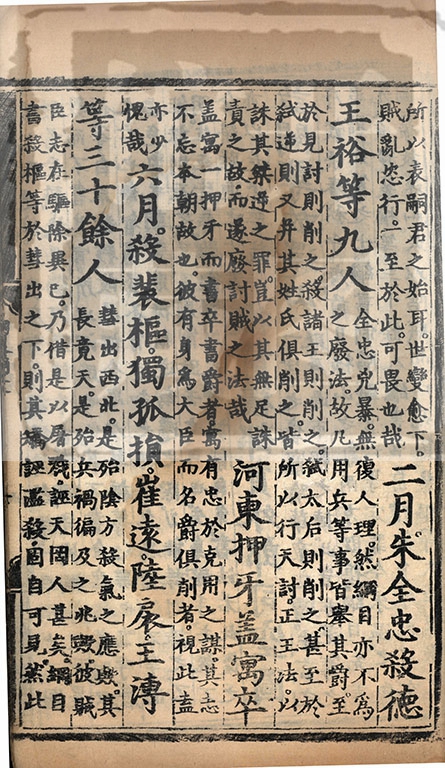 所以表嗣君之始耳世變愈下
賊亂恣行一至於此可畏也哉
二月朱全忠殺德
王裕等九人
全忠凶暴無復人理然綱目亦不爲
之廢法故凡用兵等事皆舉其爵至
於見討則削之殺諸王則削之弑太后則削之甚至於
弑逆則又并其姓氏俱削之皆所以行天討正王法以
誅其桀逆之罪豈以其無足誅
責之故而遂廢討賊之法哉
河東押牙盖寓卒
盖寓一押牙而書卒書爵者寓有忠於克用之謀其志
不忘本朝故也彼有身爲大臣而名爵俱削者視此盍
亦少
愧哉
六月殺裴樞獨孤損崔遠陸扆王溥
等三十餘人
彗出西北是殆陰方殺氣之應歟其
長竟天是殆兵禍徧及之兆歟彼賊
臣志在驅除異己乃借是以屠戮誣天罔人甚矣綱目
書殺樞等於彗出之下則其矯誣濫殺固自可見然此